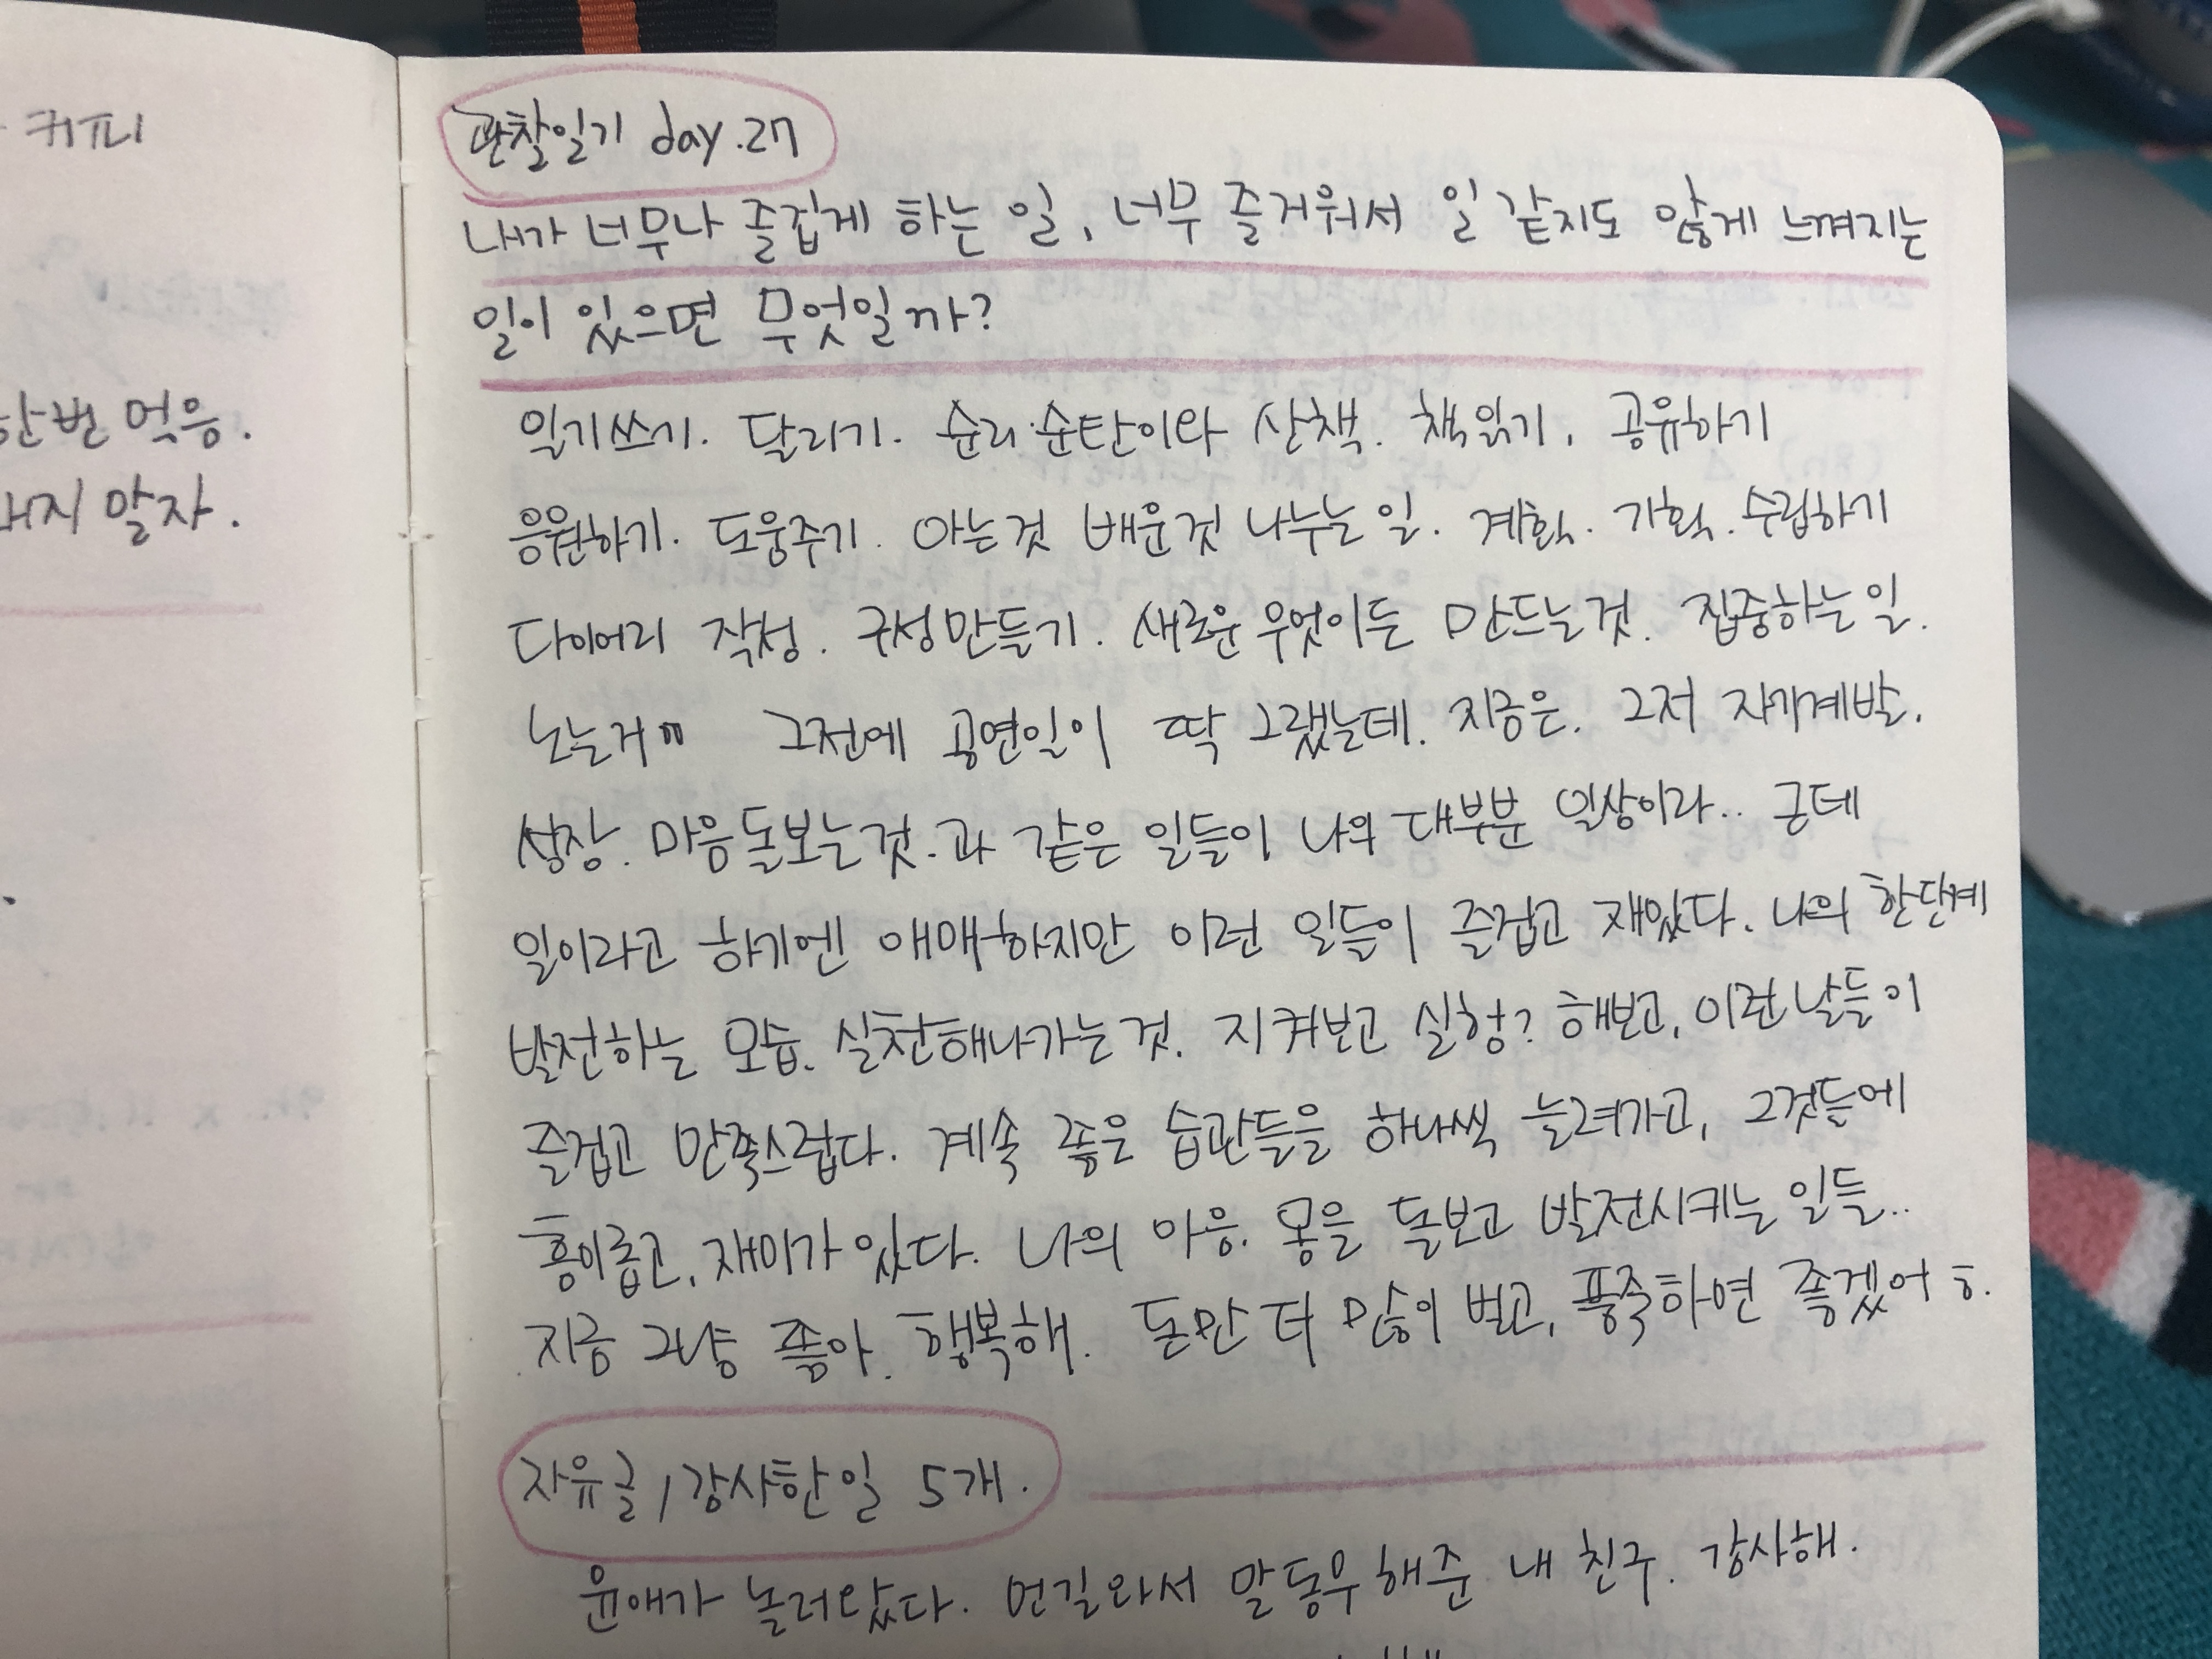 커피
한번 먹음.
내지 말자.
관찰일기 day.27
내가 너무나 즐겁게 하는 일, 너무 즐거워서 일 같지도 않게 느껴지는
일이 있으면 무엇일까?
일기쓰기. 달리기. 순리·순탄이와 산책. 책읽기. 공유하기
응원하기. 도움주기. 아는것 배운것 나누는 일. 계획. 기획. 수립하기
다이어리 작성. 구성만들기. 새로운 무엇이든 만드는것. 집중하는 일.
노는거 그전에 공연일이 딱 그랬는데. 지금은. 그저 자기계발.
성장. 마음돌보는것.과 같은 일들이 나의 대부분 일상이라.. 근데
일이라고 하기엔 애매하지만 이런 일들이 즐겁고 재밌다. 나의 한단계
발전하는 모습. 실천해나가는 것. 지켜보고 실험? 해보고, 이런 날들이
즐겁고 만족스럽다. 계속 좋은 습관들을 하나씩 늘려가고, 그것들에
흥미롭고, 재미가 있다. 나의 마음. 몸을 돌보고 발전시키는 일들..
지금 그냥 좋아. 행복해. 돈만 더 많이 벌고, 풍족하면 좋겠어 ㅎ.
자유글/감사한일 5개.
윤애가 놀러왔다. 먼길와서 말동무해준 내 친구. 감사해.